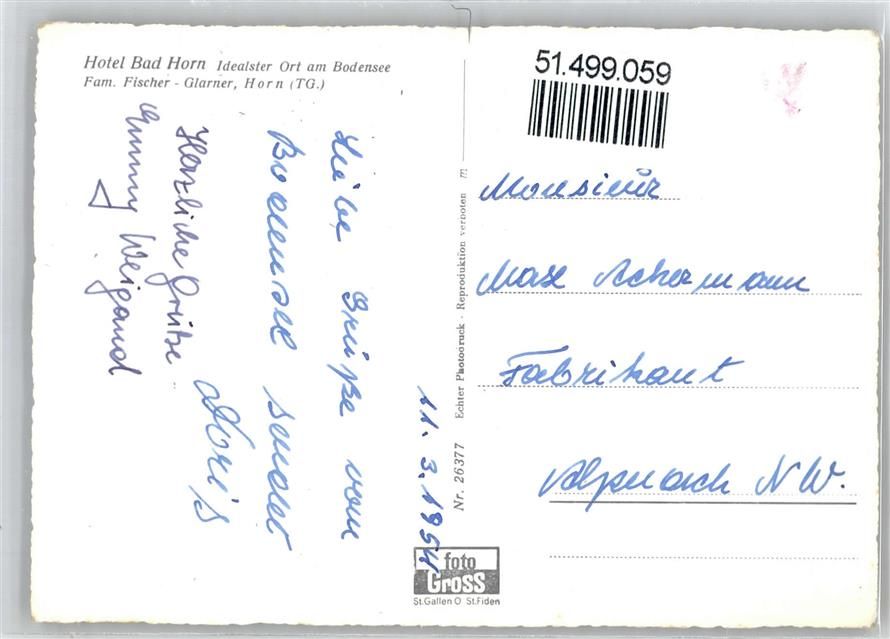 Hotel Bad Horn Idealster Ort am Bodensee
Fam. Fischer - Glarner, Horn (TG.)
Liebe Grüße vom
Bodensee sendet
Doris
Herzliche Grüße
Emmy Weigand
11. 3. 1954
Nr. 26377 Echter Photodruck - Reproduktion verboten
foto
GROSS
St.Gallen O St.Fiden
51.499.059
Monsieur
Max Achermann
Fabrikant
Alpnach N W.